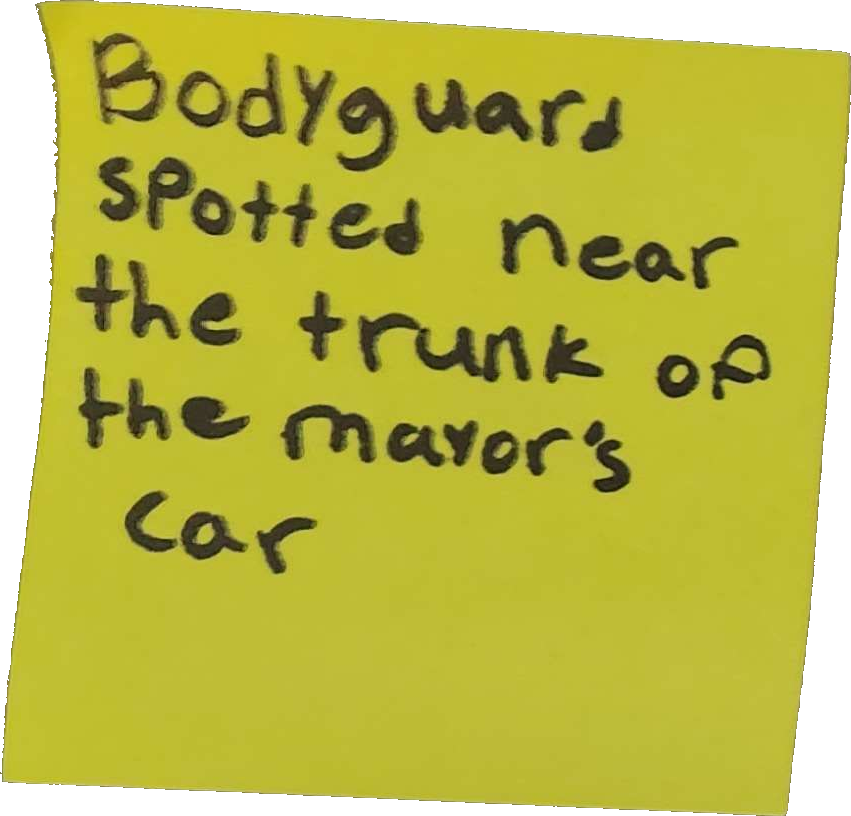 Bodyguard
spotted near
the trunk of
the mayor's
car